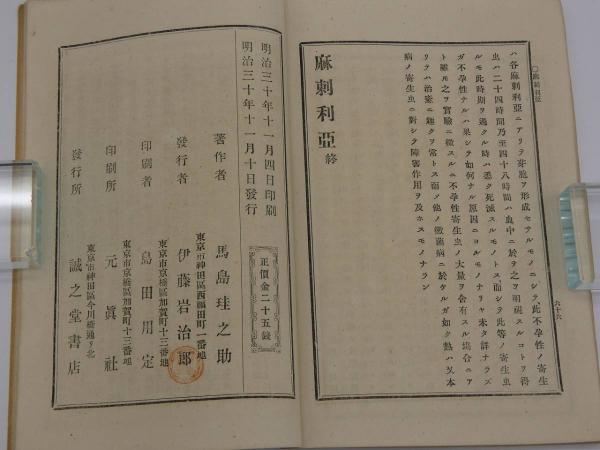 ○麻刺利亞
六十六
ハ谷麻刺利亞ニアリテ芽胞ヲ形成セザルモノニシテ、此不孕性ノ寄生
虫ハ二十四時間乃至四十八時間ハ血中ニ於テ之ヲ明視スルコトヲ得
ルモ此時期ヲ過グル時ハ悉ク死滅スルモノトス而シテ此等ノ寄生虫
ガ不孕性ナルハ果シテ如何ナル原因ニヨルモノナリヤ未タ詳ナラズ
ト雖モ之ヲ實驗ニ徴スルニ不孕性寄生虫ノ大量ヲ含有スル塲合ニア
リテハ治癒ニ趣クヲ常トス而メ他ノ黴菌病ニ於ケルガ如ク熱ハ又本
病ノ寄生虫ニ對シテ障害作用ヲ及ホスモノナラン
麻刺利亞 終
明治三十年十一月四日印刷
明治三十年十一月十日發行
正價金二十五錢
著作者 馬島珪之助
東京市神田區西福田町一番地
發行者 伊藤岩治郎
東京市京橋區加賀町十三番地
印刷者 島田用定
東京市京橋區加賀町十三番地
印刷所 元眞社
東京市神田區今川橋通リ北
發行所 誠之堂書店